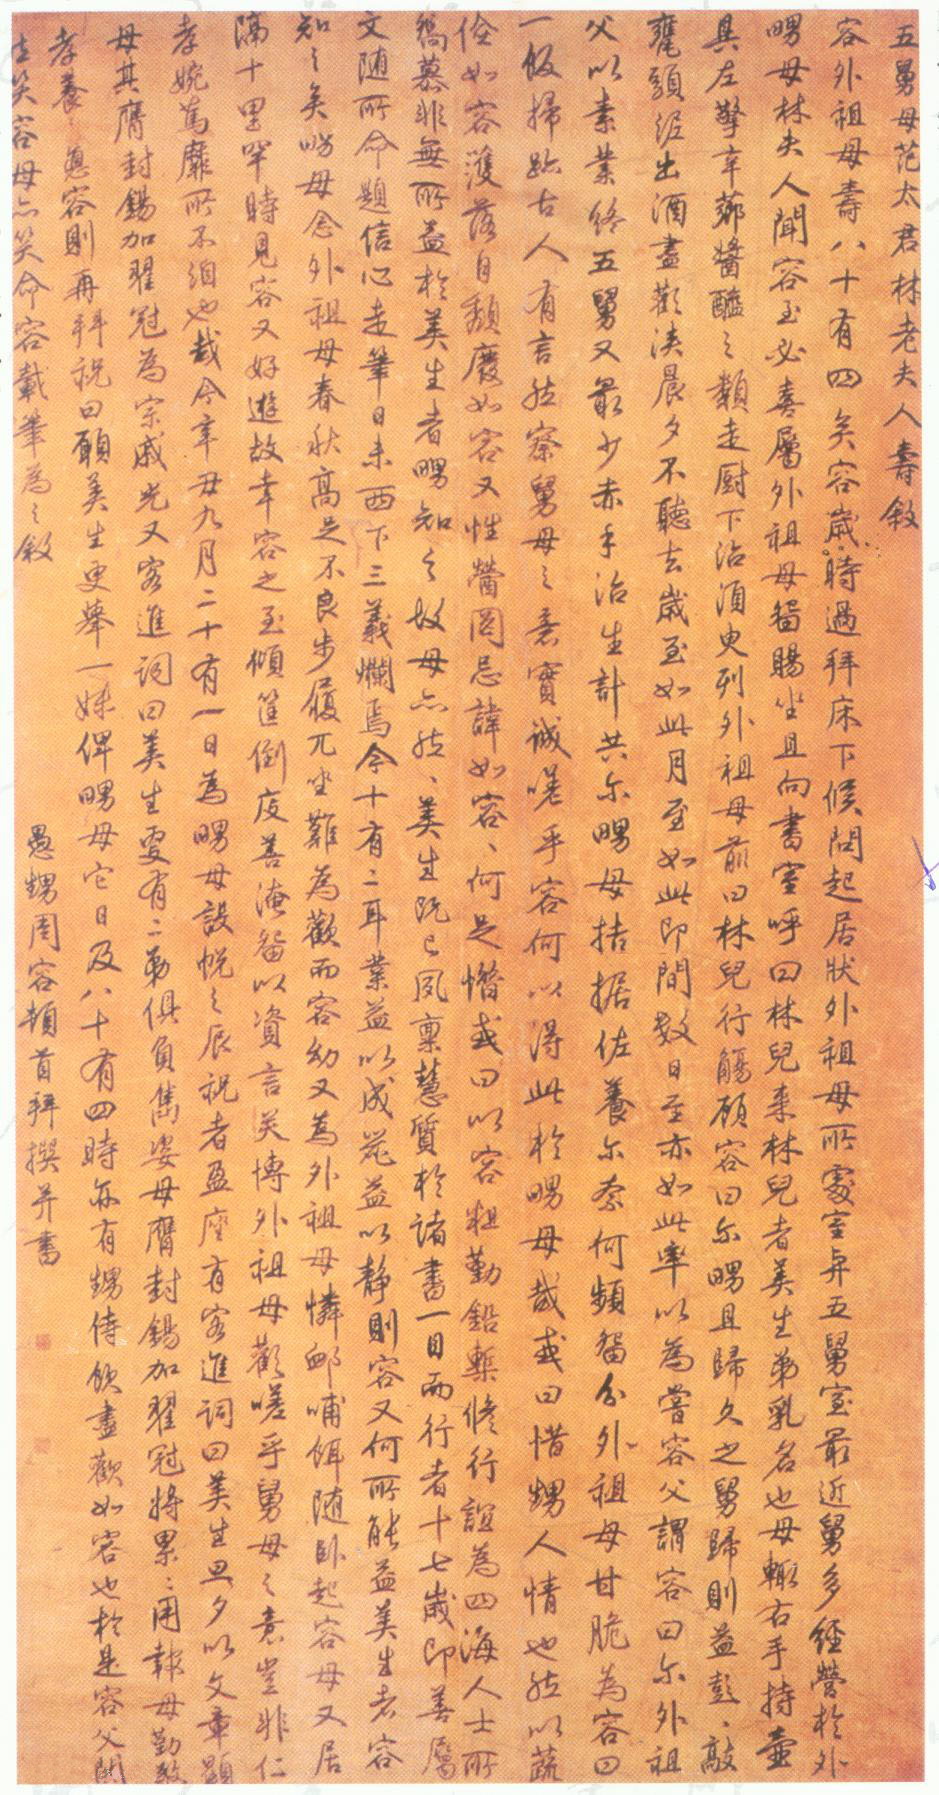 五舅母范太君林老夫人壽敘
容外祖母壽八十有四矣容歲時過拜床下候問起居狀外祖母所處室弃五舅室最近舅多經營於外
甥母林夫人聞容至必喜屬外祖母留賜坐且向書室呼曰林兒來林兒者美生弟乳名也母輒右手持壺
具左擎辛薌醬醢之類走厨下治須臾列外祖母前曰林兒行觴顧容曰尔甥且歸久之舅歸則益彭彭敲
甕頭經出酒盡歡浹晨夕不聽去歲至如此月至如此即間数日至亦如此率以為嘗容父謂容曰尔外祖
父以素業終五舅又最少赤手治生計共尔甥母拮据佐養尔奈何頻留分外祖母甘脆為容曰
一飯掃跡古人有言然察舅母之意實誠嗟乎容何以得此於甥母哉或曰惜甥人情也然以蔬
俭如容濩落自頹廢如容又性鶯罔忌諱如容、何足惜或曰以容粗勤鉛槧修行誼為四海人士所
竊慕非無所益於美生者甥知之故母亦然、美生既已夙稟慧質於諸書一目而行者十七歲即善屬
文随所命題信心走筆日未西下三義爛焉今十有二耳業益以成蔸益以静則容又何所能益美生者容
知之矣甥母念外祖母春秋高足不良步履兀坐難為歡而容幼又為外祖母憐卹哺餌随卧起容母又居
滴十里罕時見容又好遊故幸容之至傾筐倒庋善淹留以資言笑博外祖母歡嗟乎舅母之意豈非仁
孝婉篤靡所不洎也哉今年丑九月二十有一日為甥母設帨之辰祝者盈座有客進詞曰美生旦夕以文章顯
母其膺封錫加翟冠為宗戚光又客進詞曰美生更有二弟俱負雋姿母膺封錫加翟冠將累二用報母勤敬
孝養之恩容則再拜祝曰願美生更舉一妹俾甥母它日及八十有四時亦有甥侍飲盡歡如容也於是容父聞
之笑容母亦笑命容載筆為之敘
愚甥周容頓首拜撰并書